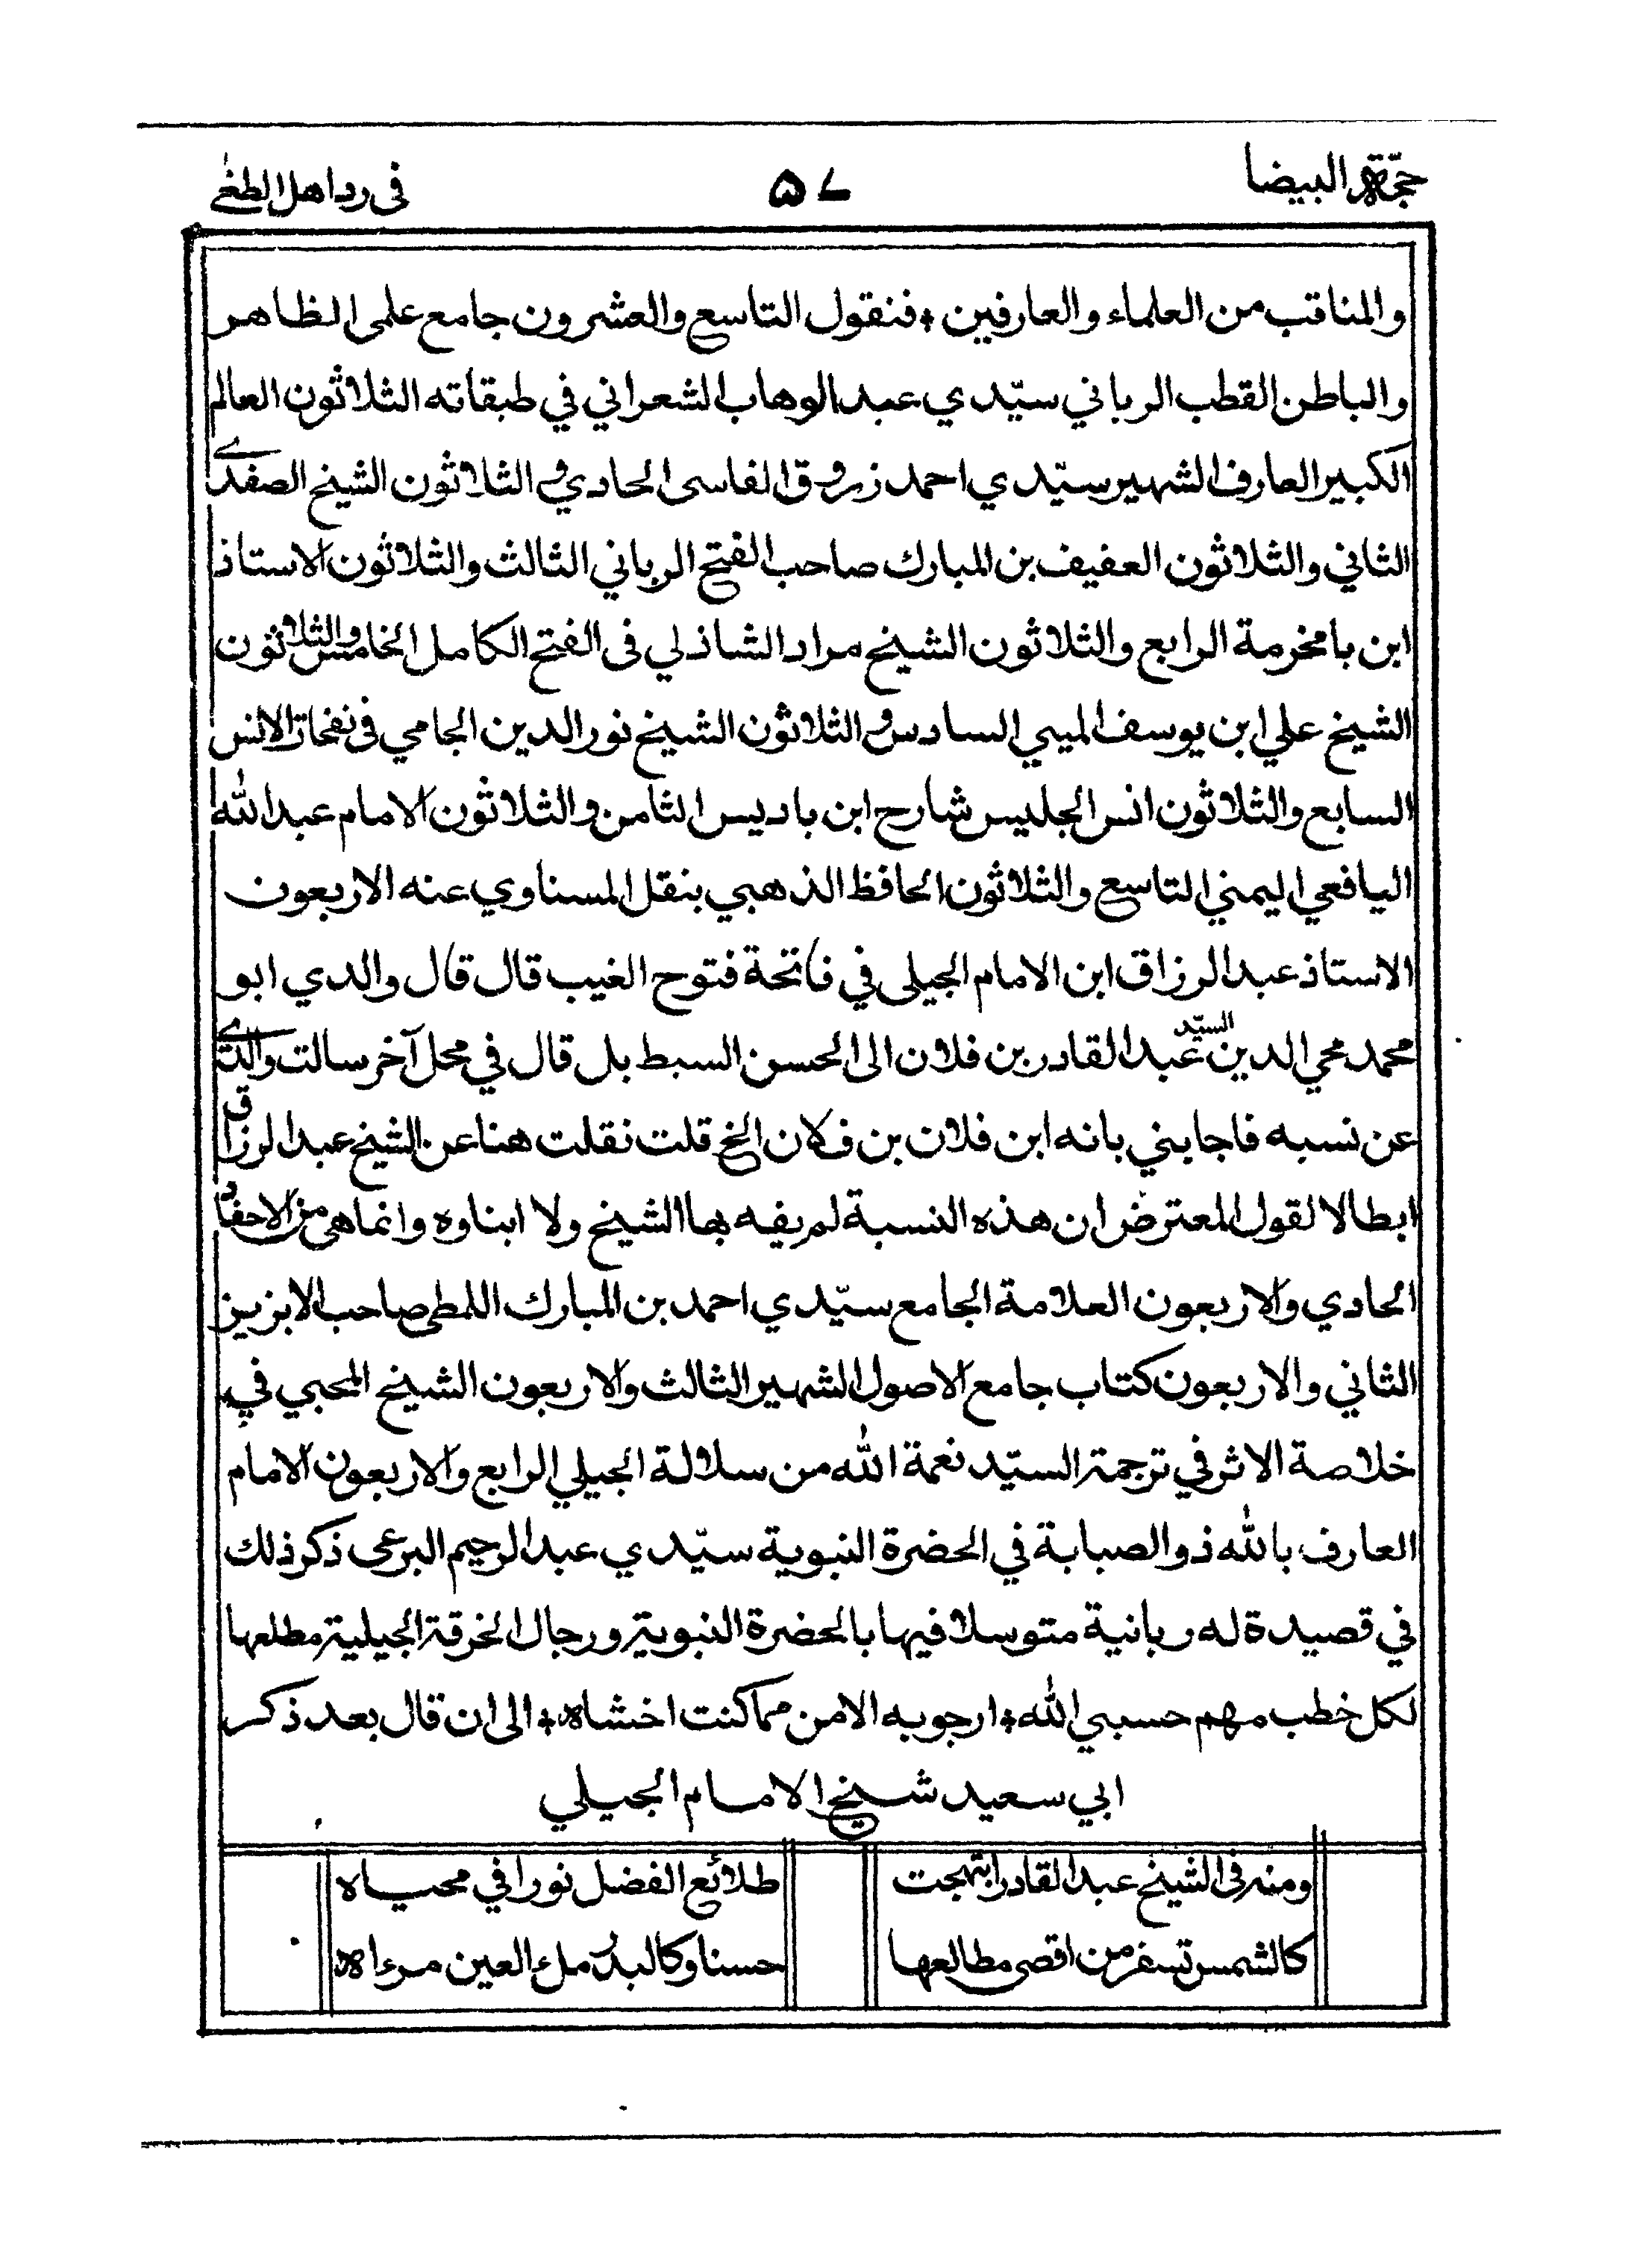 حجّة البيضا
۵۷
فى رد اهل الطغى
والمناقب من العلماء والعارفين * فنقول التاسع والعشرون جامع علمى الظاهر
والباطن القطب الرباني سيّدي عبد الوهاب الشعراني في طبقاته الثلاثون العالم
الكبير العارف الشهير سيّدي احمد زروق الفاسى الحادي والثلاثون الشيخ الصفدى
الثاني والثلاثون العفيف بن المبارك صاحب الفتح الرباني الثالث والثلاثون الاستاذ
ابن بامخرمة الرابع والثلاثون الشيخ مراد الشاذلي فى الفتح الكامل الخامس والثلاثون
الشيخ علي ابن يوسف الميبي السادس والثلاثون الشيخ نور الدين الجامي فى نفحات الانس
السابع والثلاثون انس الجليس شارح ابن باديس الثامن والثلاثون الامام عبد الله
اليافعي اليمني التاسع والثلاثون الحافظ الذهبي بنقل المسناوي عنه الاربعون
الاستاذ عبد الرزاق ابن الامام الجيلى في فاتحة فتوح الغيب قال قال والدي ابو
محمد محي الدين السيّد عبد القادر بن فلان الى الحسن السبط بل قال في محل آخر سالت والدى
عن نسبه فاجابني بانه ابن فلان بن فلان الخ قلت نقلت هنا عن الشيخ عبد الرزاق
ابطالا لقول المعترض ان هذه النسبة لم يفه بها الشيخ ولا ابناوه وانما هى من الاحفاد
الحادي والاربعون العلامة الجامع سيّدي احمد بن المبارك اللمطى صاحب الابزيز
الثاني والاربعون كتاب جامع الاصول الشهير الثالث والاربعون الشيخ المحبي في
خلاصة الاثر في ترجمة السيّد نعمة الله من سلالة الجيلي الرابع والاربعون الامام
العارف بالله ذو الصبابة في الحضرة النبوية سيّدي عبد الرحيم البرعى ذكر ذلك
في قصيدة له ربانية متوسلا فيها بالحضرة النبوية ورجال الخرقة الجيلية مطلعها
لكل خطب مهم حسبي الله * ارجو به الامن مما كنت اخشاه * الى ان قال بعد ذكر
ابي سعيد شيخ الامام الجيلي
ومنه فى الشيخ عبد القادر ابتهجت طلائع الفضل نورا في محياه
كالشمس تسفر من اقصى مطالعها حسنا وكالبدر ملء العين مرءاه